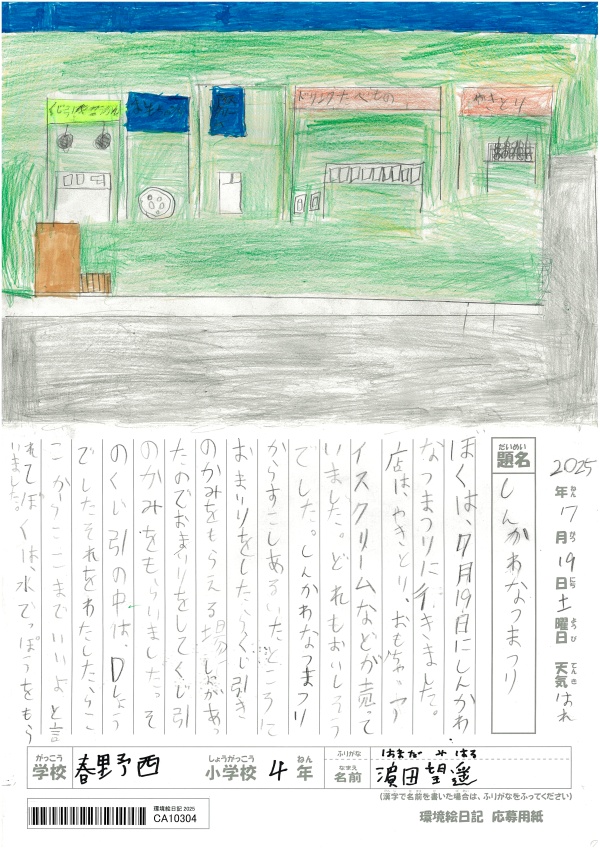 ドリンクたべもの
やきとり
2025年7月19日土曜日 天気はれ
ねん
がつ
にち
ようび
てんき
だいめい
題名
しんかわなつまつり
ぼくは、7月19日にしんかわ
なつまつりに行きました。
店は、やきとり、おもちゃ、ア
イスクリームなどが売って
いました。どれもおいしそう
でした。しんかわなつまつり
からすこしあるいたところに
おまいりをしたらくじ引き
のかみをもらえる場しょがあっ
たのでおまいりをしてくじ引
のかみをもらいました。そ
のくじ引の中は、Dしょう
でした。それをわたしたらこ
こからここまでいいよと言
われてぼくは、水でっぽうをもら
いました。
がっこう
学校
春野西
しょうがっこう
小学校
4
ねん
年
ふりがな
はまだ みはる
なまえ
名前
濵田望遥
(漢字で名前を書いた場合は、ふりがなをふってください)
環境絵日記 2025
CA10304
環境絵日記 応募用紙